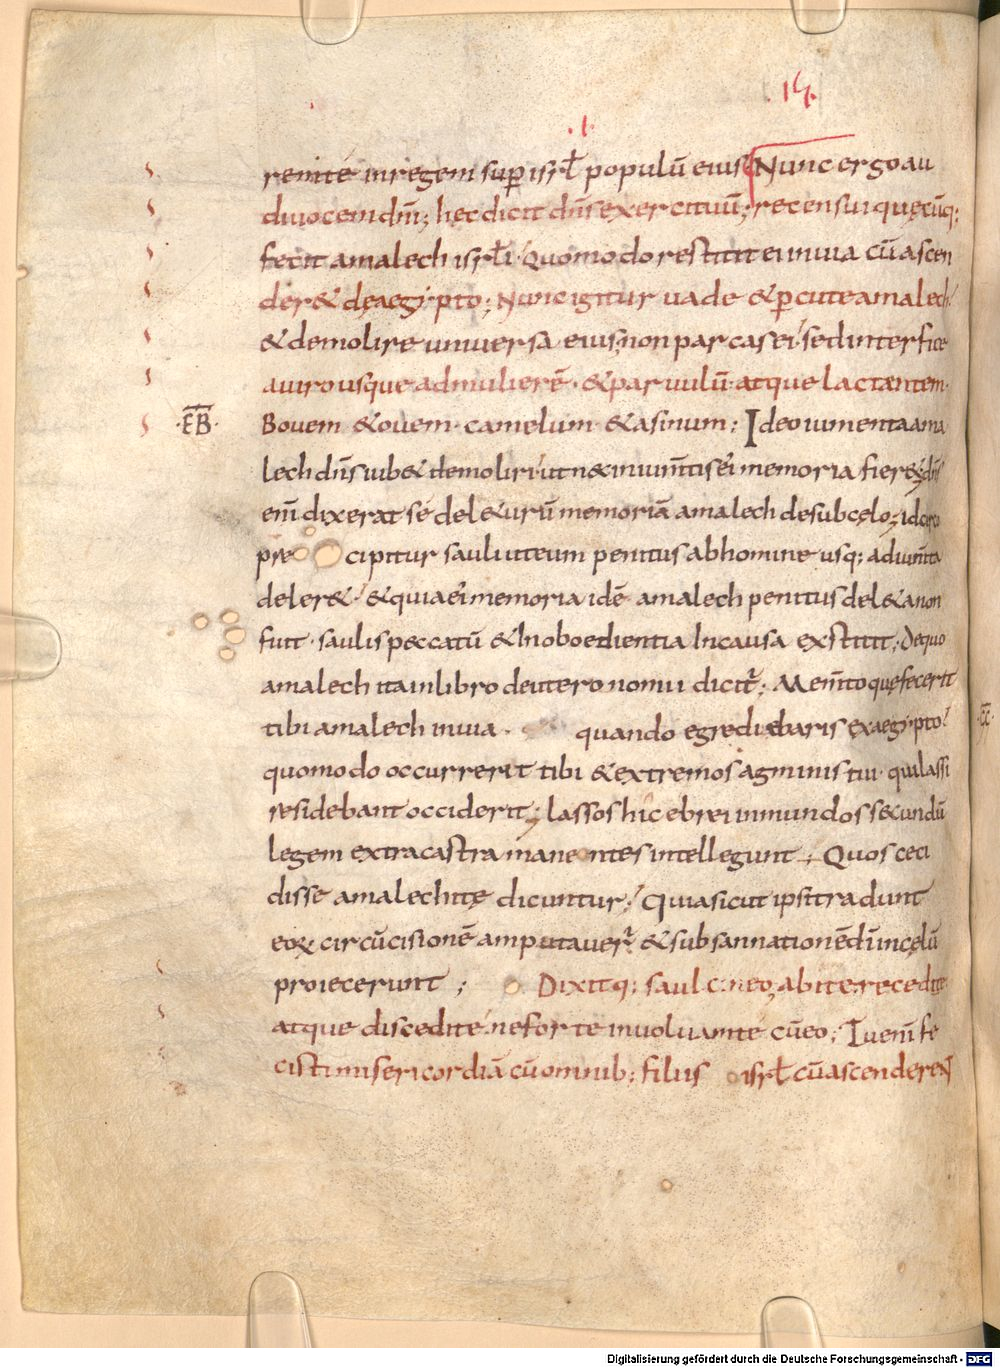 .15.
.i.
remite inregem sup isrł populū eius Nunc ergo au
di uocem dn̄i; hęc dicit dn̄s exercituū; recensui quęcūq;
fecit amalech isrłi; Quomodo restitit ei inuia cū ascen
der& deaegypto; Nunc igitur uade &percute amalech
& demolire uniuersa eius; non parcas ei; sed interfice
auiro usque admulierē· &paruulū atque lactantem·
·EB· Bouem &ouem· camelum &asinum; Ideo iumenta ama
lech dn̄s iub& demoliri ut n& iniumt̄is ei memoria fier&; dn̄s
eni̅ dixerat se delēturū memoriā amalech desubcęlo; idcirco
prę cipitur sauli ut eum penitus abhomine usq; adiumt̄a
deler& · &quia ei memoria idē amalech penitus del&a non
fuit· saulis peccatū &Inoboedientia Incausa exstitit; De quo
amalech ita inlibro deuteronomii dicit̄; Mem̄to quę fecerit
tibi amalech inuia · quando egrediebaris exaegypto;
quomodo occurrerit tibi &extremos agminis tui· qui lassi
residebant occiderit; lassos hic ebrei inmundos secundū
legem extra castra manentes intellegunt; Quos ceci
disse amalechitę dicuntur; Quia sicut ipsi tradunt
eoꝝ circūcisionē amputauer̄ &subsannationē dn̄i incęlū
proiecerunt; Dixitq; saul cineo; abite recedite
atque discedite; ne forte inuoluam te cū eo; Tu eni̅ fe
cisti misericordiā cū omnib; filiis isrł cū ascenderen
Digitalisierung gefördert durch die Deutsche Forschungsgemeinschaft - DFG